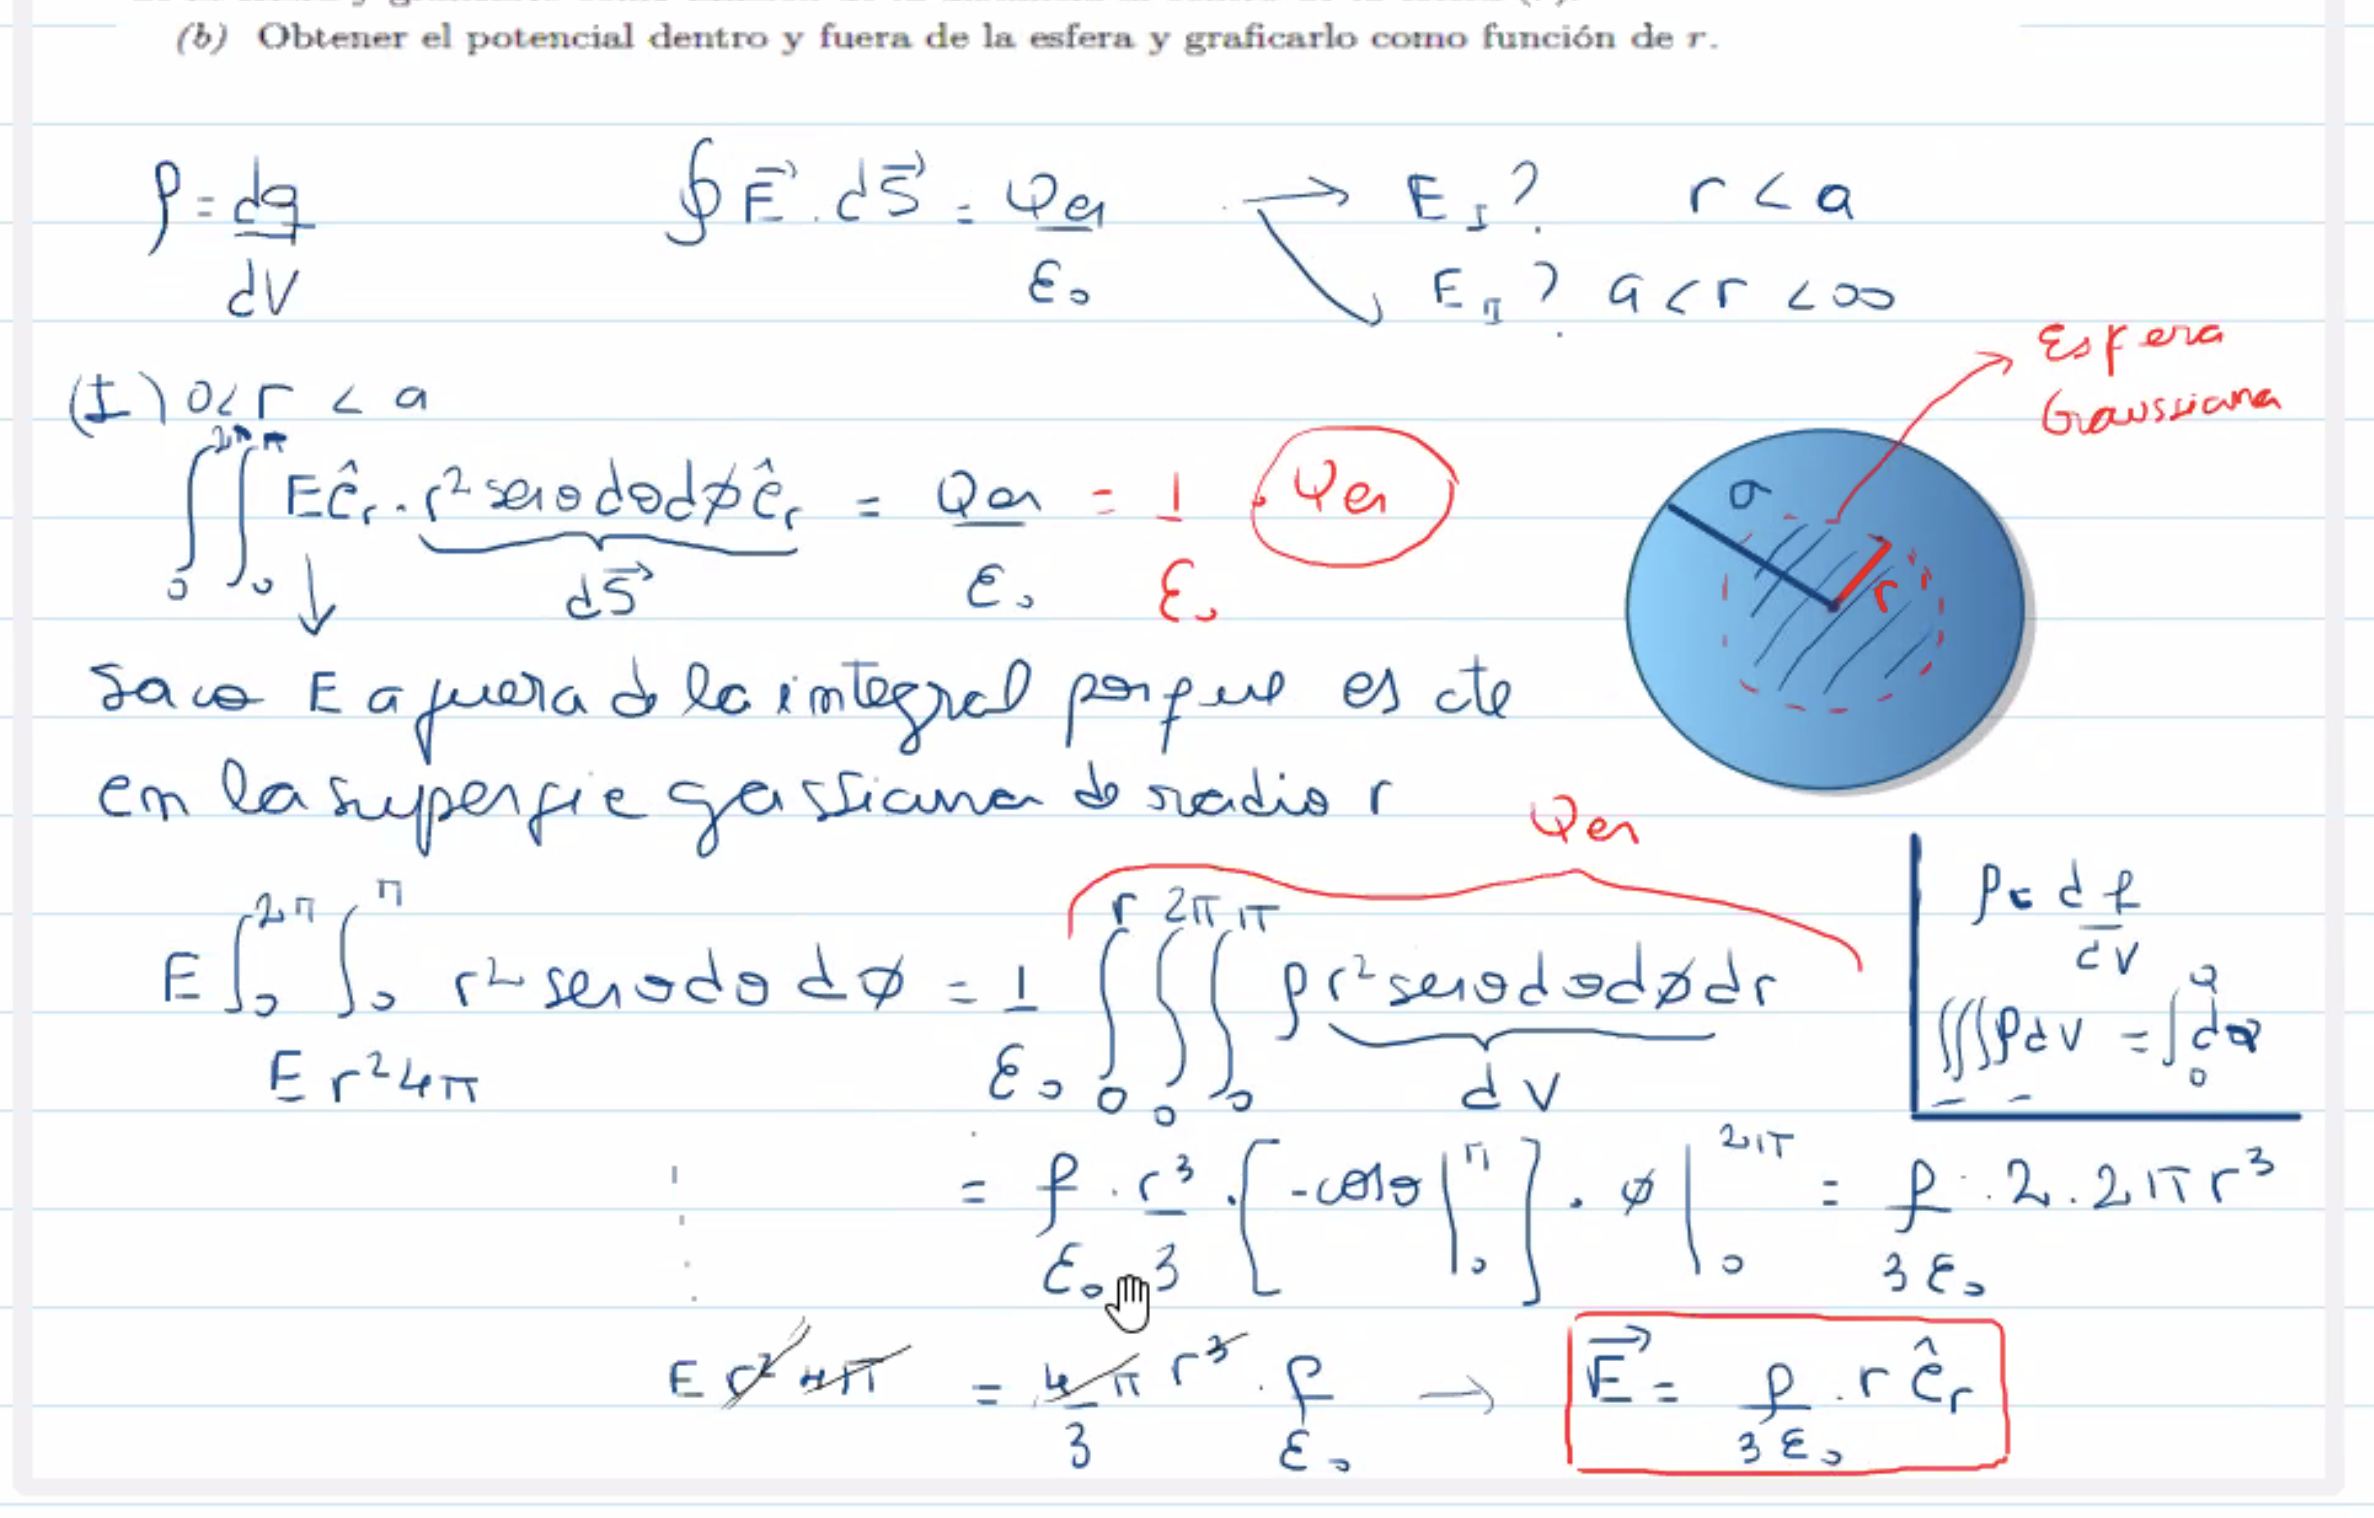 (b) Obtener el potencial dentro y fuera de la esfera y graficarlo como función de r.
ρ = dq/dV    ∮ E⃗ . dS⃗ = Qen/ε₀ → E_I ?  r < a
E_II ?  a < r < ∞
Esfera
Gaussiana
(I) 0 < r < a
∫₀^2π ∫₀^π E ê_r . r² senθ dθ dφ ê_r = Qen/ε₀ = 1/ε₀ . Qen
dS⃗
a
r
Saco E a fuera de la integral porque es cte
en la superfie gassiana de radio r
Qen
E ∫₀^2π ∫₀^π r² senθ dθ dφ = 1/ε₀ ∫₀^r ∫₀^2π ∫₀^π ρ r² senθ dθ dφ dr
dV
E r² 4π
ρ = dq/dV
∭ ρ dV = ∫₀^Q dq
= ρ/ε₀ . r³/3 . [ -cosθ |₀^π ] . φ |₀^2π = ρ/3ε₀ . 2 . 2π r³
E r² 4π = 4/3 π r³ . ρ/ε₀ → E⃗ = ρ/3ε₀ . r ê_r